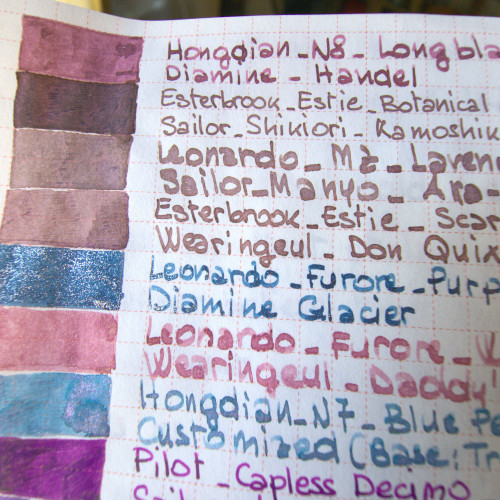 Hongdian_N8_Long bla
Diamine - Handel
Esterbrook_Estie_Botanical
Sailor_Shikiori_Kamoshik
Leonardo_MZ_Laven
Sailor_Manyo_Ara-
Esterbrook_Estie_Scar
Wearingeul_Don Quix
Leonardo_Furore_Purp
Diamine Glacier
Leonardo_Furore_
Wearingeul_Daddy
Hongdian_N7_Blue Pe
Customized (Base: Tr
Pilot _Capless Decimo